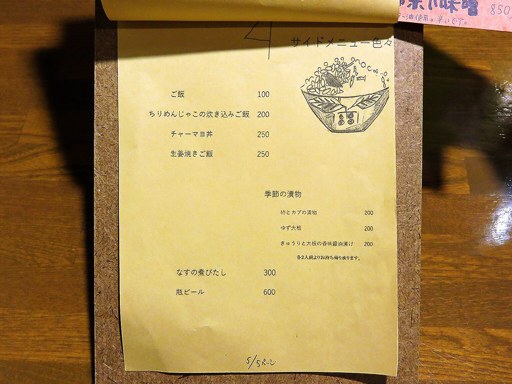 味噌 850
サイドメニュー色々
ご飯 100
ちりめんじゃこの炊き込みご飯 200
チャーマヨ丼 250
生姜焼きご飯 250
季節の漬物
柿とカブの漬物 200
ゆず大根 200
きゅうりと大根の香味醤油漬け 200
なすの煮びたし 300
瓶ビール 600